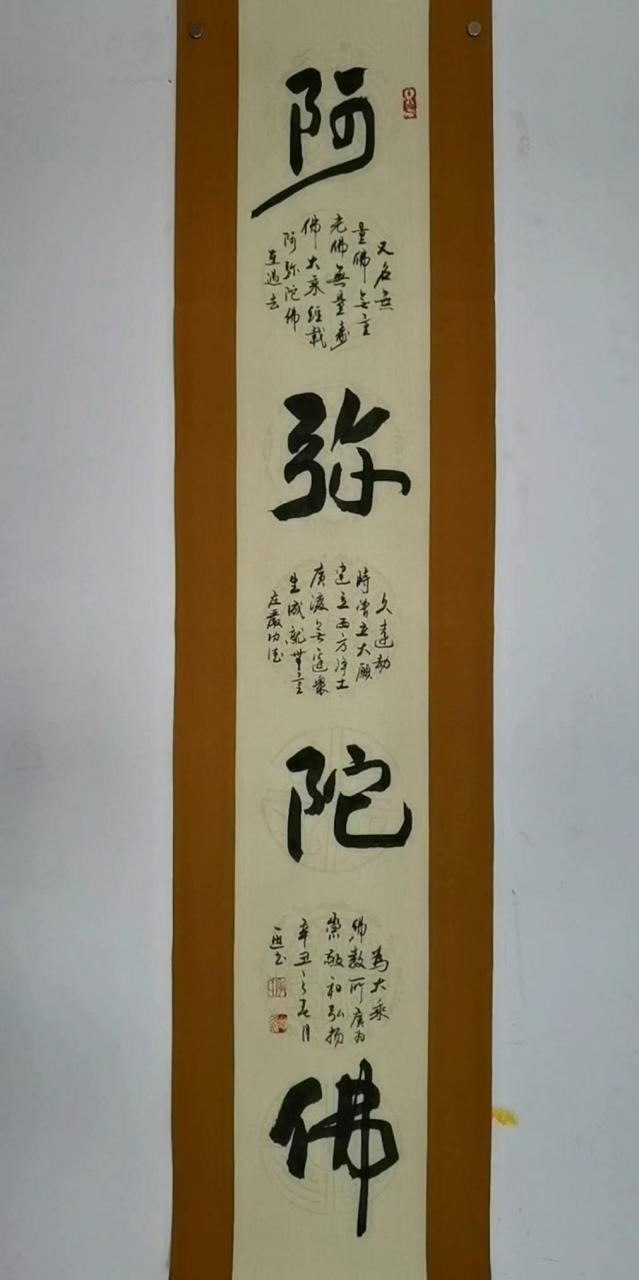 阿
又名无
量佛无量
光佛無量壽
佛大乘经载
阿弥陀佛
在过去
弥
久远劫
時曾立大願
建立西方淨土
廣渡无边眾
生成就無量
庄嚴功德
陀
為大乘
佛教所廣为
崇敬和弘扬
辛丑之春月
书
佛